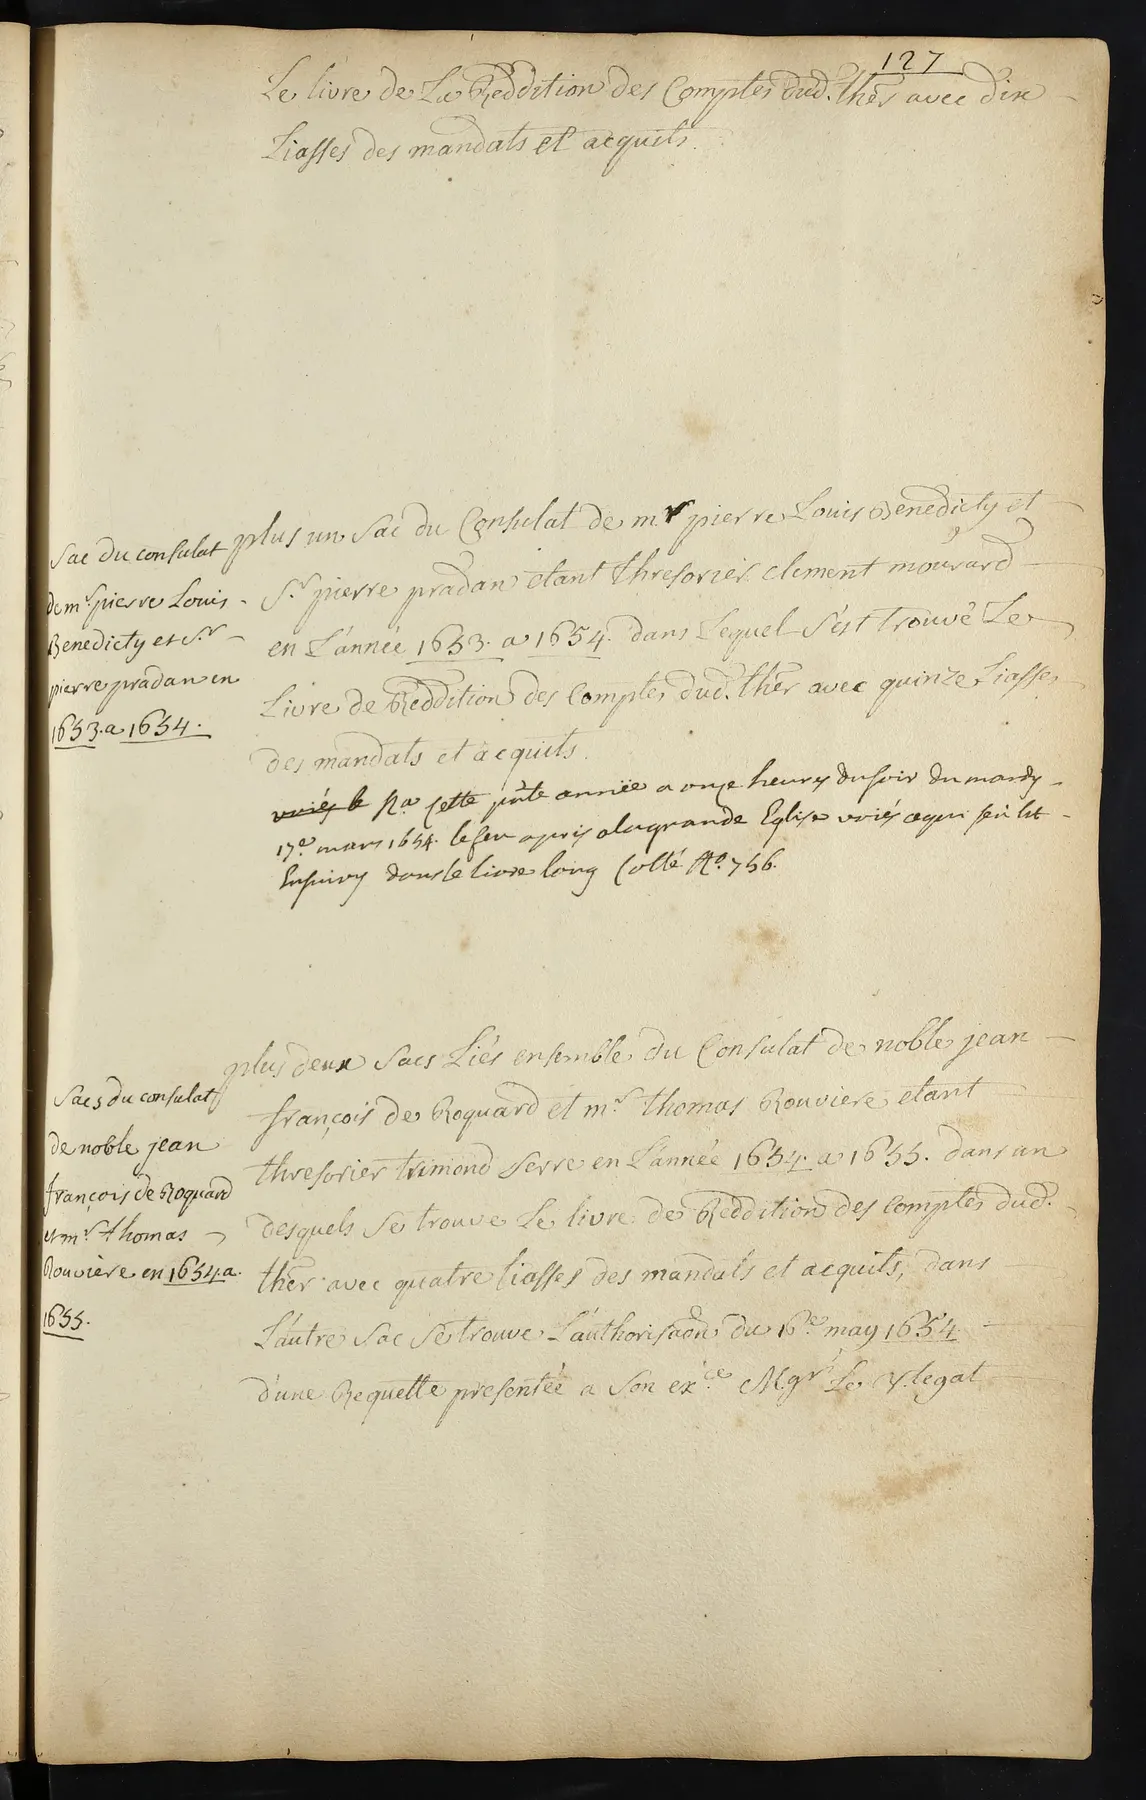 127
Le livre de La Reddition des Comptes dud. ther avec dix
Liasses des mandats et acquits.
Sac du consulat
de mr. pierre Louis
Benedicty et Sr.
pierre pradan en
1653. a 1654.
plus un Sac du Consulat de mr pierre Louis Benedicty et
Sr. pierre pradan etant thresorier clement mourard
en L'année 1653. a 1654. dans Lequel S'est trouvé Le
Livre de Reddition des Comptes dud. ther avec quinze Liasses
des mandats et acquits.
voiés le Na. Cette pnte année a onze heures du soir du mardy
17e mars 1654. le feu apris a la grande Eglise voiés ce qui s'en est
Ensuivy dans le livre long Cotté No. 756.
Sacs du consulat
de noble jean
françois de Roquard
et mr. thomas
Rouviere en 1654 a.
1655.
plus deux Sacs Liés ensemble du Consulat de noble jean
françois de Roquard et mr. thomas Rouviere etant
thresorier trimond Serre en L'année 1654. a 1655. dans un
desquels Se trouve Le livre de Reddition des Comptes dud.
ther avec quatre liasses des mandats et acquits, dans
L'autre Sac Se trouve L'authorisaon du 16e may 1654
d'une Requette presentée a Son exce. Mgr. Le V. legat